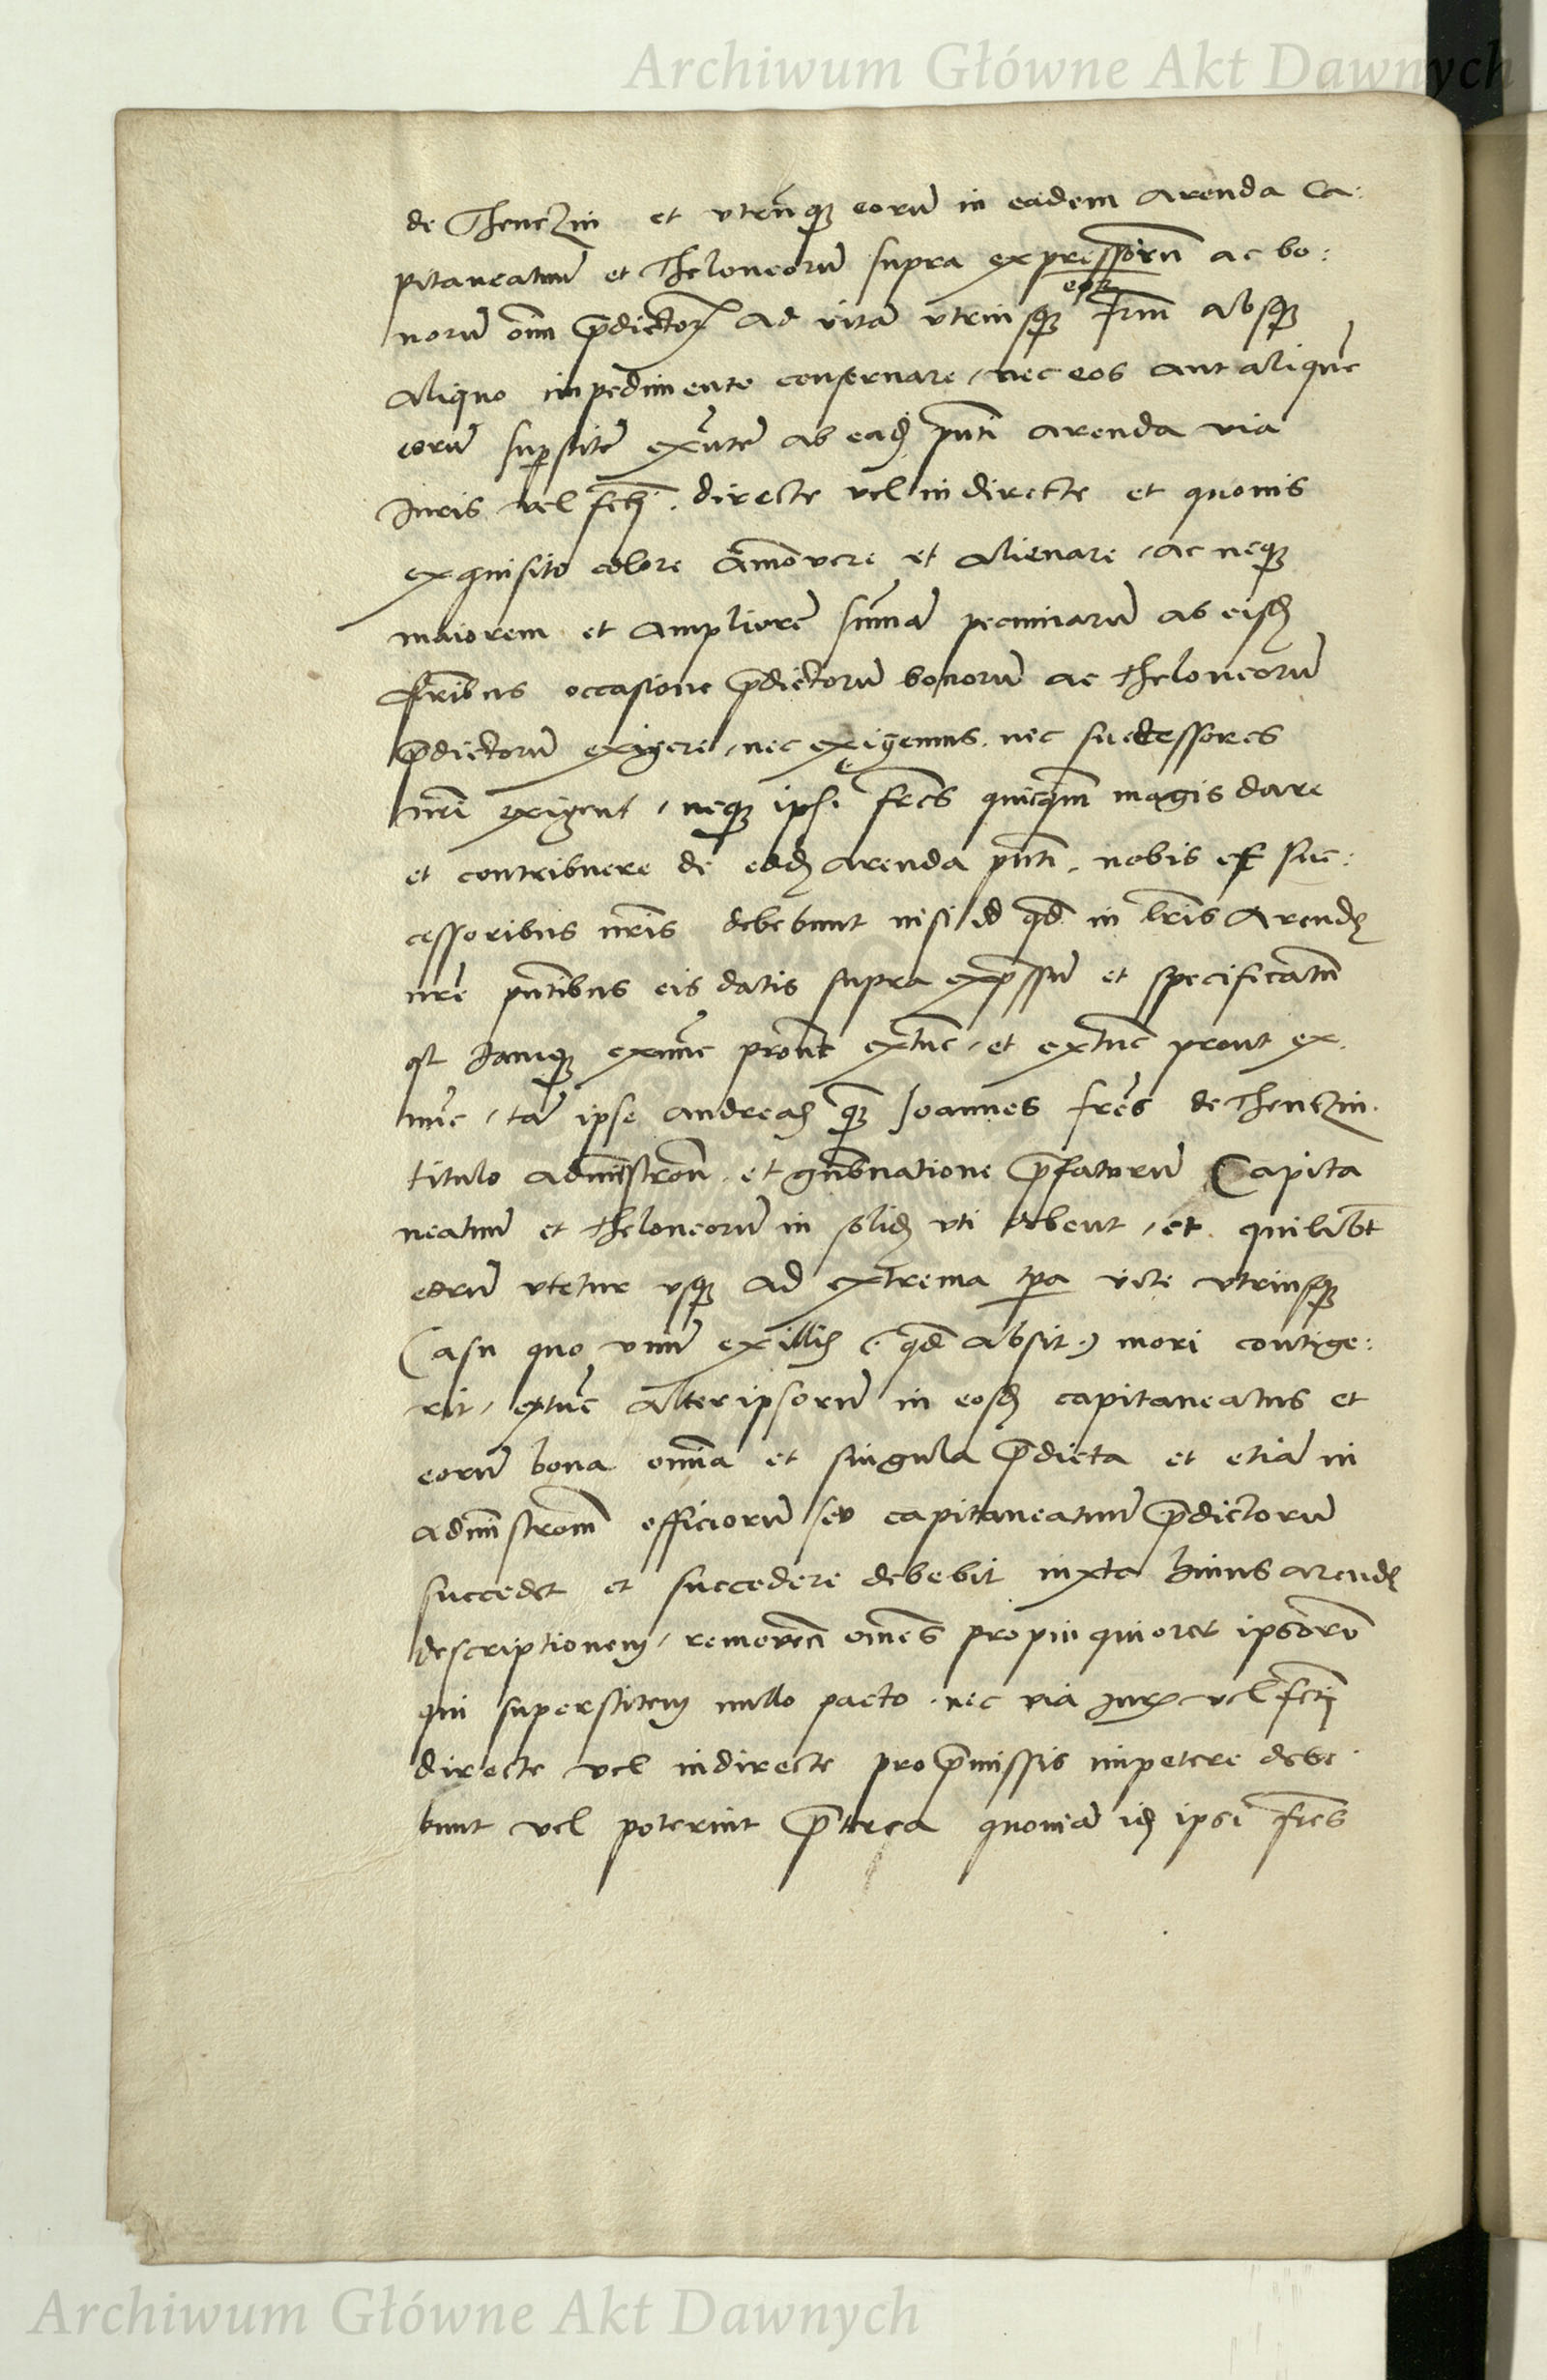 Archiwum Główne Akt Dawnych
de Thenczin et vtrūq̨ eorū in eadem arenda Ca:
pitaneatuū et Theloneorū supra expressorū ac bo:
norū om̄ p̄dictoꝝ ad vitā vtriusq̨ eoꝝ fr̄m absq̨
aliquo impedimento conseruare, nec eos aut aliquē
eorū sup̄stitē exūtē ab ead̨ pn̄ti arenda via
Juris vel fc̄ti. directe vel indirecte et quouis
exquisito colore āmouere et alienare, ac neq̨
maiorem et ampliorē sum̄ā pecuniarū ab eisd̨
fr̄ibus occasione p̄dictorū bonorū ac theloneorū
p̄dictorū exigere, nec exigemus. nec successores
nr̄i exigent, neq̨ ipsi fr̄es quicq̄m magis dare
et contribuere de ead̨ arenda pn̄ti, nobis et suc:
cessoribus nr̄is debebunt nisi id qd̄ in lr̄is Arendę
nr̄e pn̄tibus eis datis supra exp̄ssū et specificatū
est Jamq̨ exnūc prout extūc, et extūc prout ex.
nūc, tā ipse andreas q̨̄ Joannes fr̄es de Thenczin.
titulo adm̄istron̄. et gub̄natione p̄fatorū Capita
neatuū et theloneorū in solid̨ vti debent, et quilibt̄
eorū vtetur vsq̨ ad extrema tp̄a vite vtriusq̨
Casu quo vnū ex illis (. qd̄ absit .) mori contige:
rit, extūc alter ipsorū in eosd̨ capitaneatus et
eorū bona om̄ia et singula p̄dicta et etiā in
adm̄istrom̄ officiorū seu capitaneatuū p̄dictorū
succedet et succedere debebit iuxta huius arendę
descriptionem, remouen̄ om̄es propinquiores ipsorū
qui superstitem nullo pacto. nec via Juris vel fc̄ti
directe vel indirecte pro p̄missis impetere debe
bunt vel poterint p̄terea quoniā id̨ ipsi fr̄es
Archiwum Główne Akt Dawnych